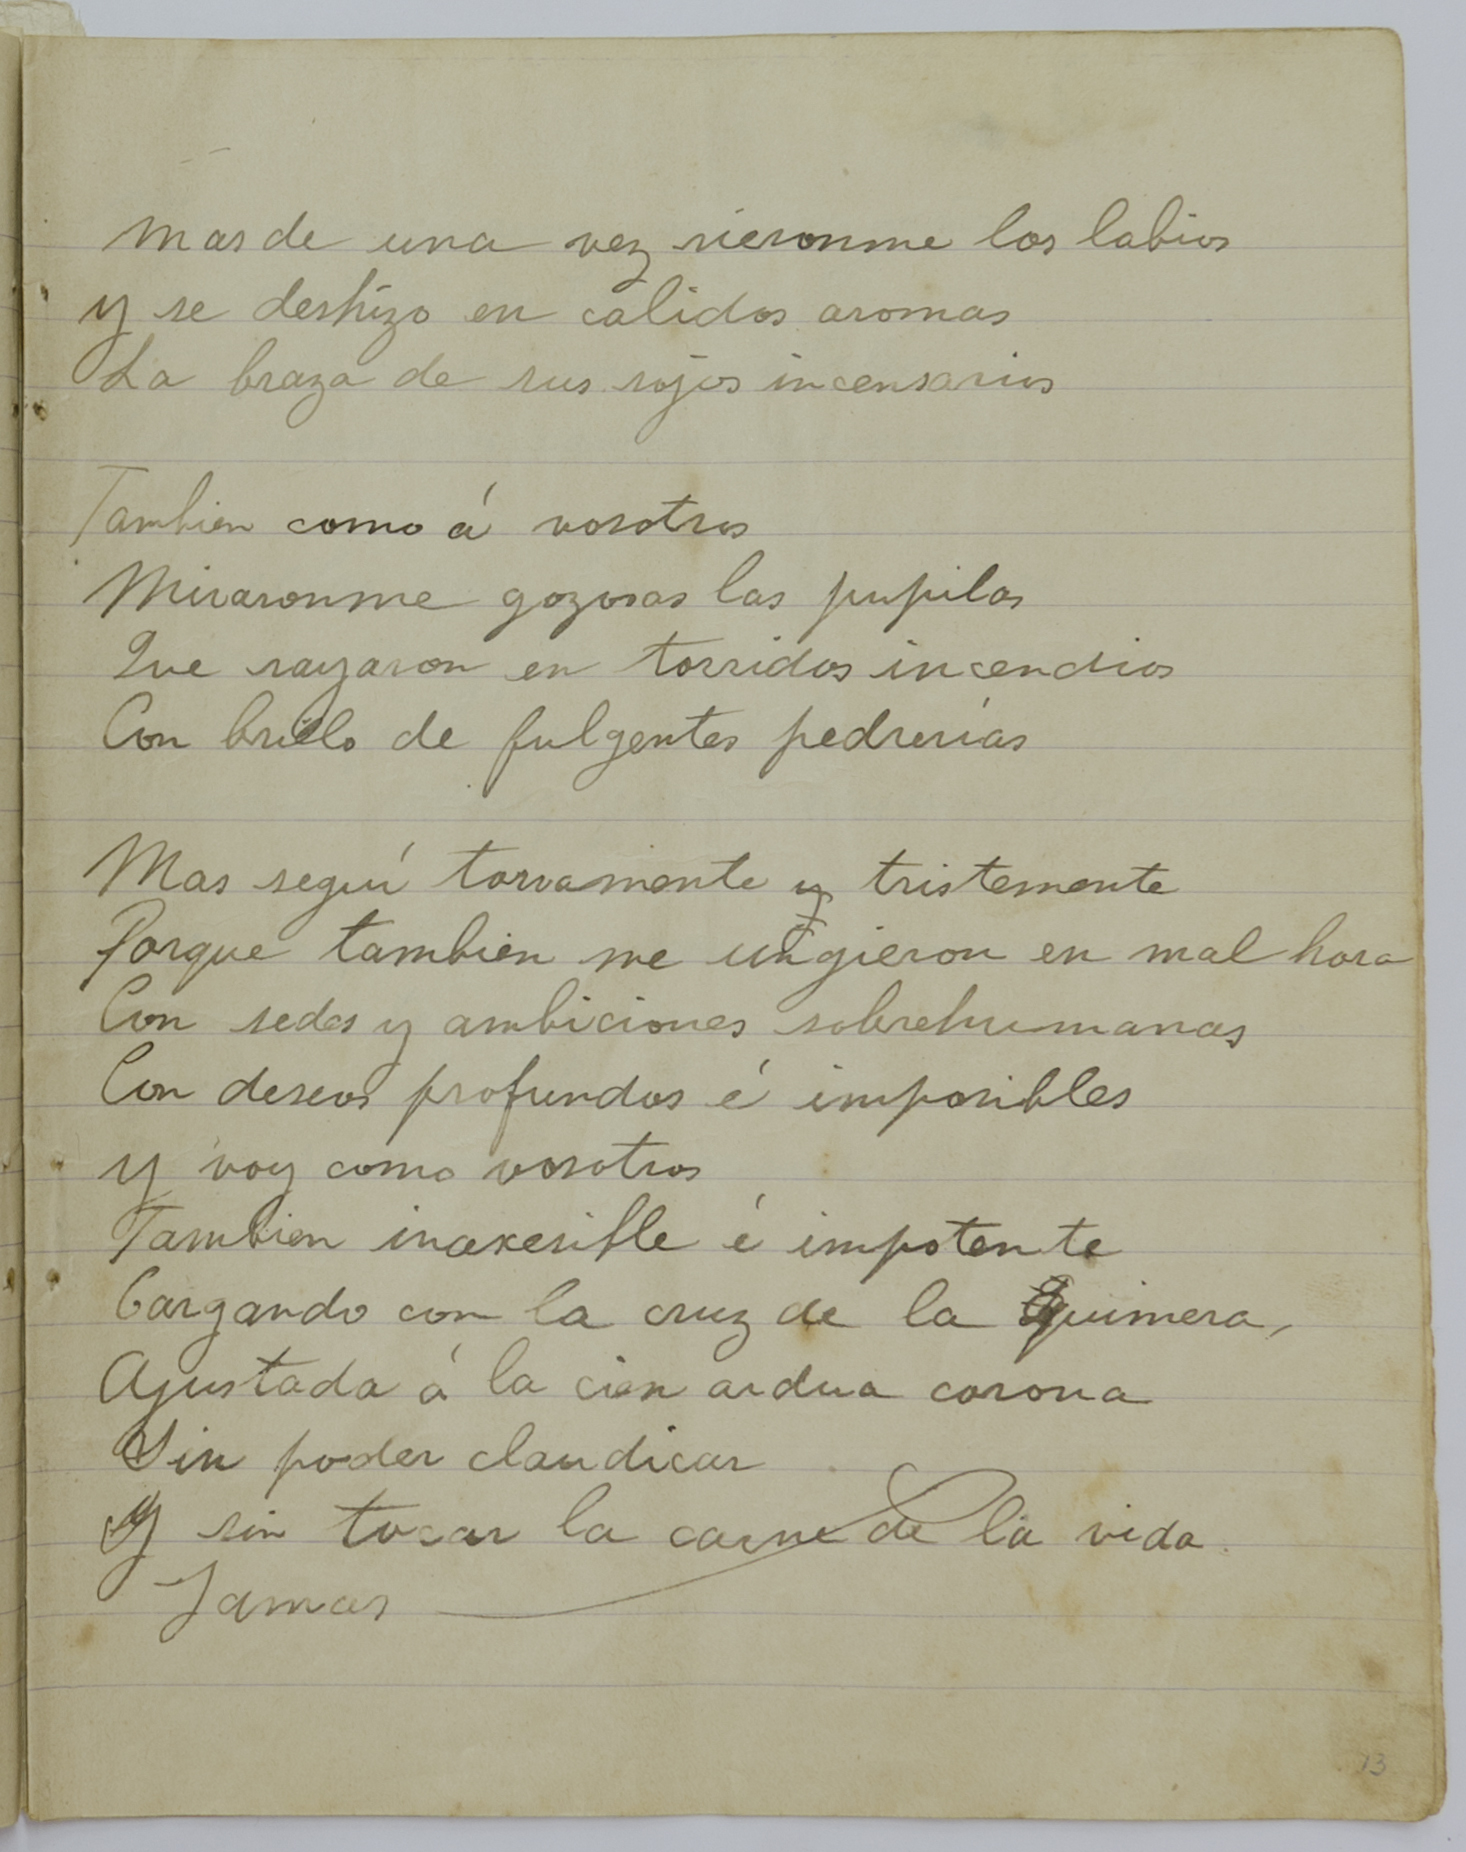 Mas de una vez rieronme los labios
y se deshizo en calidos aromas
La braza de sus rojos incensarios
Tambien como á vosotros
Miraronme gozosas las pupilas
Que rayaron en torridos incendios
Con brillo de fulgentes pedrerías
Mas seguí torvamente y tristemente
Porque tambien me ungieron en mal hora
Con sedes y ambiciones sobrehumanas
Con deseos profundos é imposibles
y voy como vosotros
Tambien inaxesible é impotente
Cargando con la cruz de la Quimera,
Ajustada á la cien ardua corona
Sin poder claudicar
Y sin tocar la carne de la vida.
Jamas
13